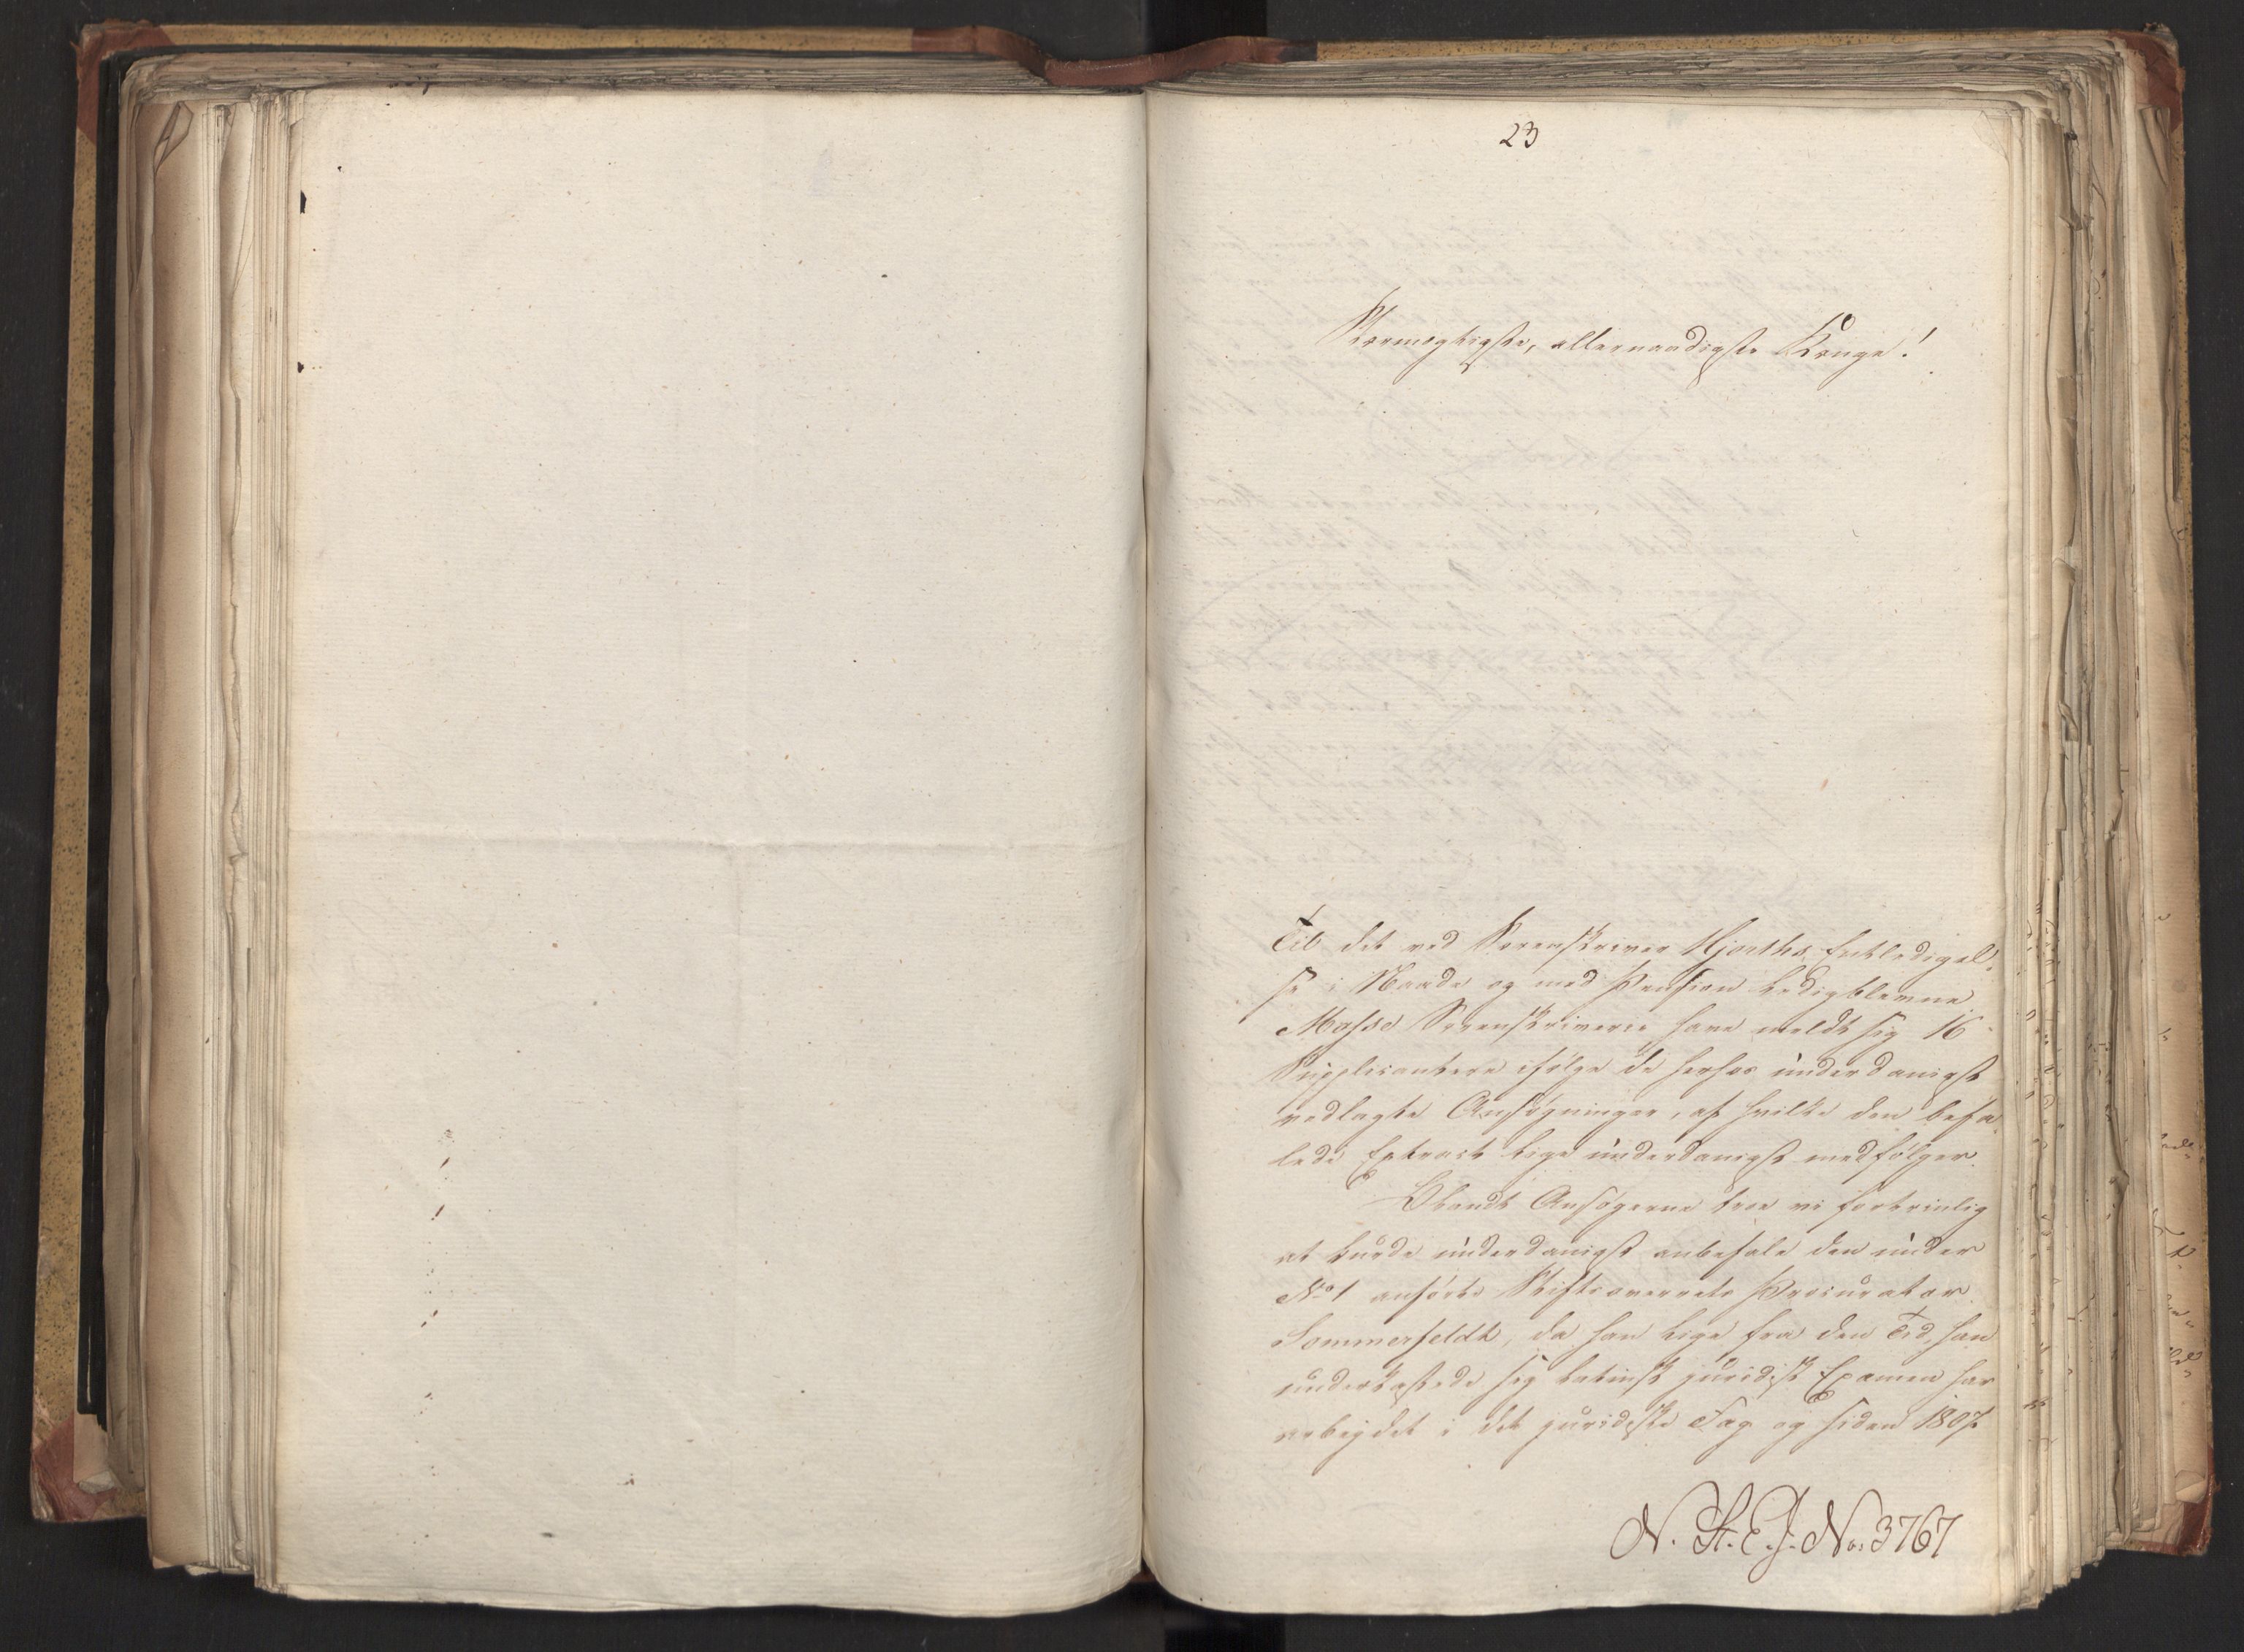 23
Stormægtigste, allernaadigste Konge!
Til det ved Sorenskriver Hjorths Entledigel-
se i Naade og med Pension ledigblevne
Mosse Sorenskriverie have meldt sig 16
Supplicantere ifølge de herhos underdanigst
vedlagte Ansøgninger, af hvilke den befa-
lede Extract lige underdanigst medfølger.
Blandt Ansøgerne troe vi fortrinlig
at burde underdanigst anbefale den under
No 1 anførte Stiftsoverrets Procurator
Sommerfeldt, da han lige fra den Tid, han
underkastede sig latinsk juridisk Examen har
arbejdet i det juridiske Fag og siden 1807
N. St. E. J. No. 3767